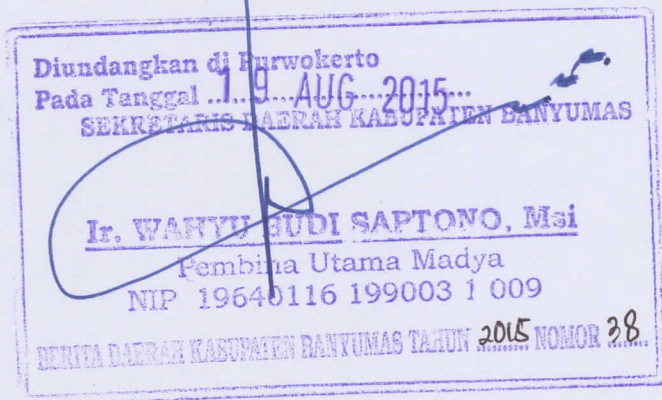 Diundangkan di Purwokerto
Pada Tanggal ...19 AUG 2015...
SEKRETARIS DAERAH KABUPATEN BANYUMAS
Ir. WAHYU BUDI SAPTONO, Msi
Pembina Utama Madya
NIP 19640116 199003 1 009
BERITA DAERAH KABUPATEN BANYUMAS TAHUN 2015 NOMOR 38